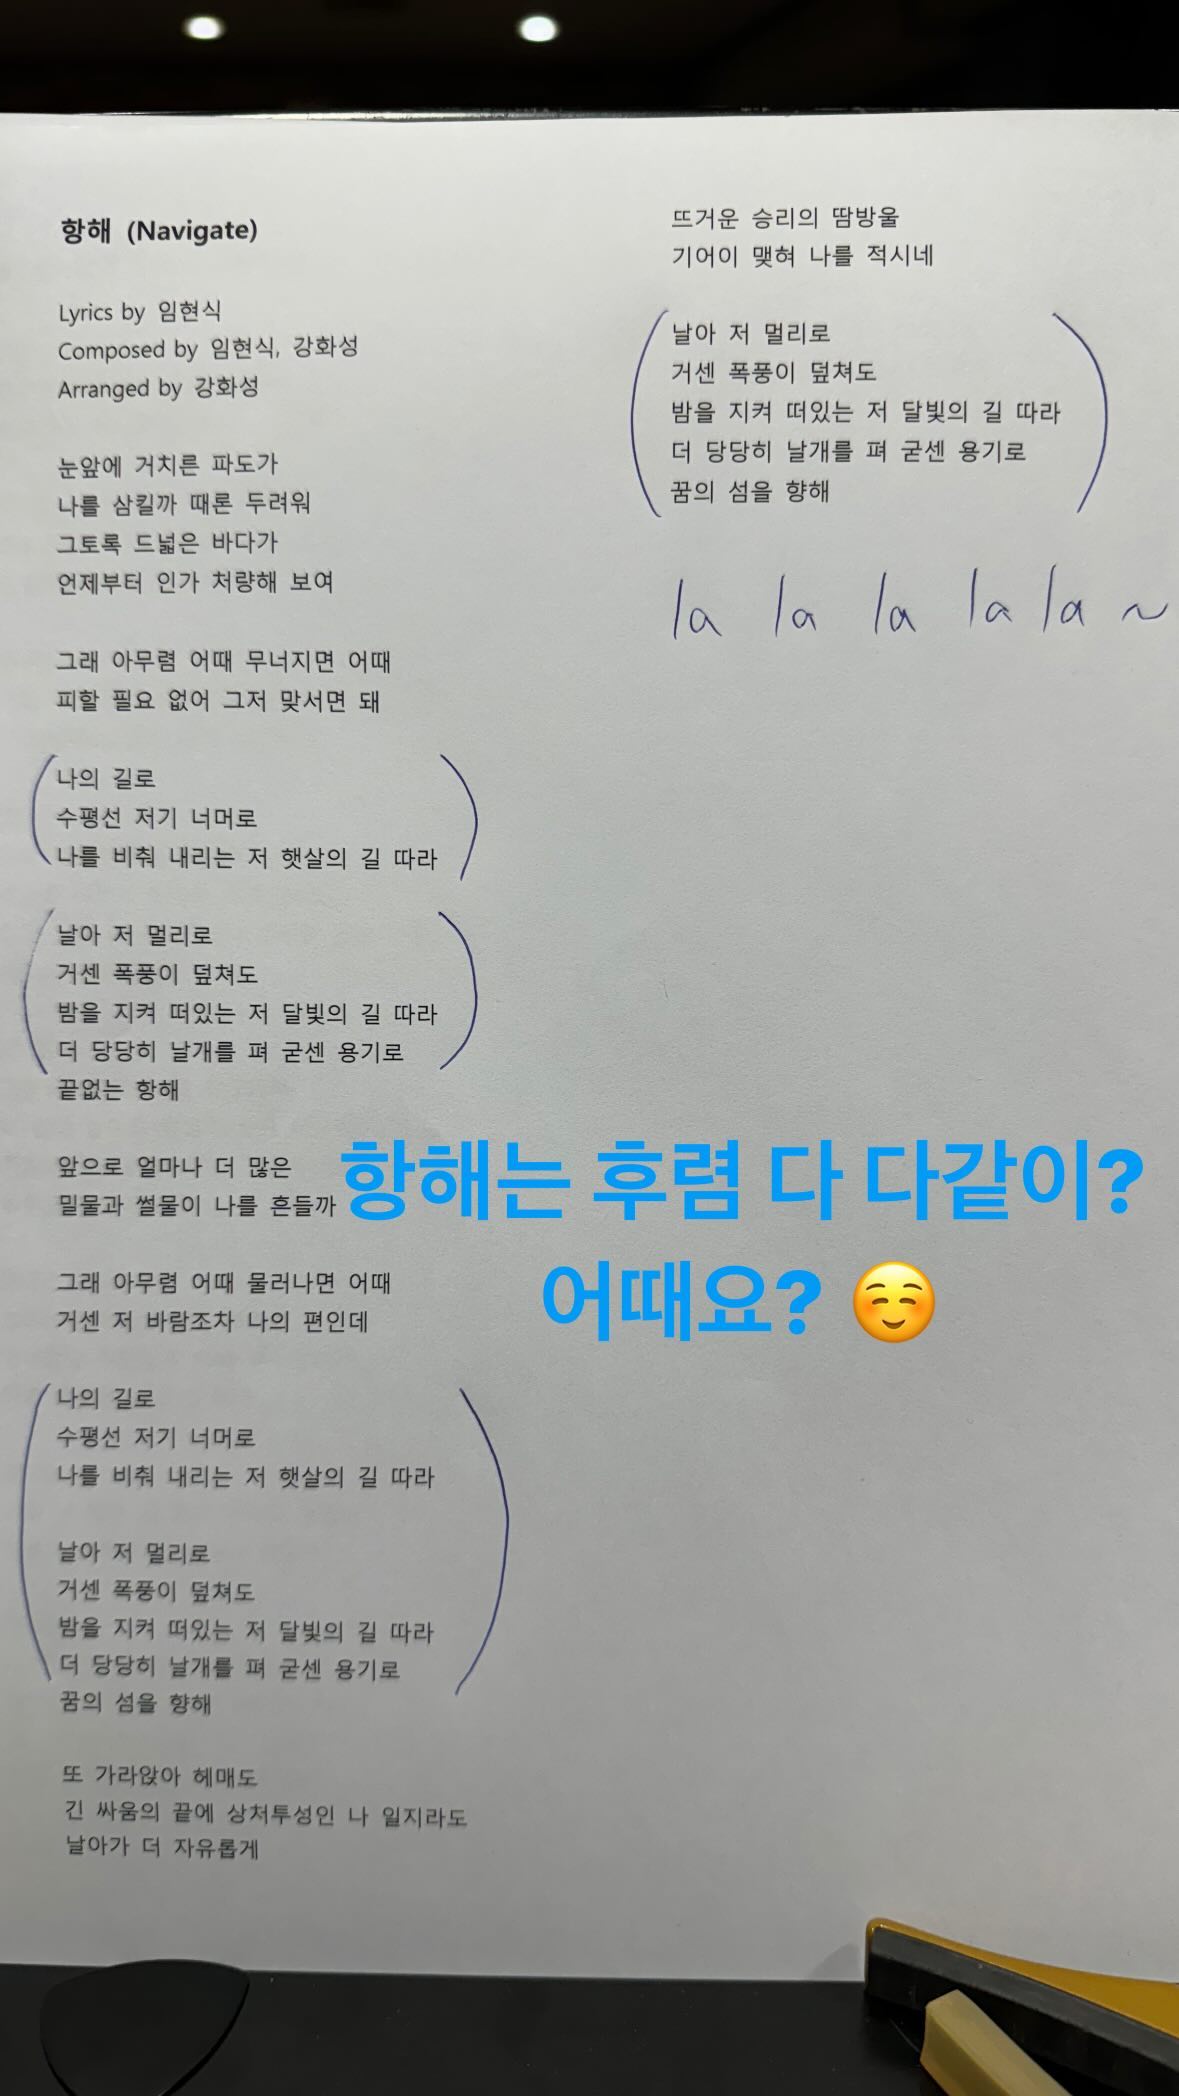 항해 (Navigate)
Lyrics by 임현식
Composed by 임현식, 강화성
Arranged by 강화성
눈앞에 거치른 파도가
나를 삼킬까 때론 두려워
그토록 드넓은 바다가
언제부터 인가 처량해 보여
그래 아무렴 어때 무너지면 어때
피할 필요 없어 그저 맞서면 돼
나의 길로
수평선 저기 너머로
나를 비춰 내리는 저 햇살의 길 따라
날아 저 멀리로
거센 폭풍이 덮쳐도
밤을 지켜 떠있는 저 달빛의 길 따라
더 당당히 날개를 펴 굳센 용기로
끝없는 항해
앞으로 얼마나 더 많은
밀물과 썰물이 나를 흔들까
그래 아무렴 어때 물러나면 어때
거센 저 바람조차 나의 편인데
나의 길로
수평선 저기 너머로
나를 비춰 내리는 저 햇살의 길 따라
날아 저 멀리로
거센 폭풍이 덮쳐도
밤을 지켜 떠있는 저 달빛의 길 따라
더 당당히 날개를 펴 굳센 용기로
꿈의 섬을 향해
또 가라앉아 헤매도
긴 싸움의 끝에 상처투성인 나 일지라도
날아가 더 자유롭게
뜨거운 승리의 땀방울
기어이 맺혀 나를 적시네
날아 저 멀리로
거센 폭풍이 덮쳐도
밤을 지켜 떠있는 저 달빛의 길 따라
더 당당히 날개를 펴 굳센 용기로
꿈의 섬을 향해
la la la la la ~
항해는 후렴 다 다같이?
어때요? ☺️